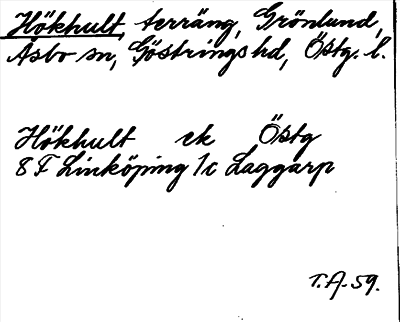 Hökhult, terräng, Grönlund,
Asbo sn, Göstrings hd, Östg. l.
Hökhult ek Östg
8 F Linköping 1c Laggarp
T.A. 59.